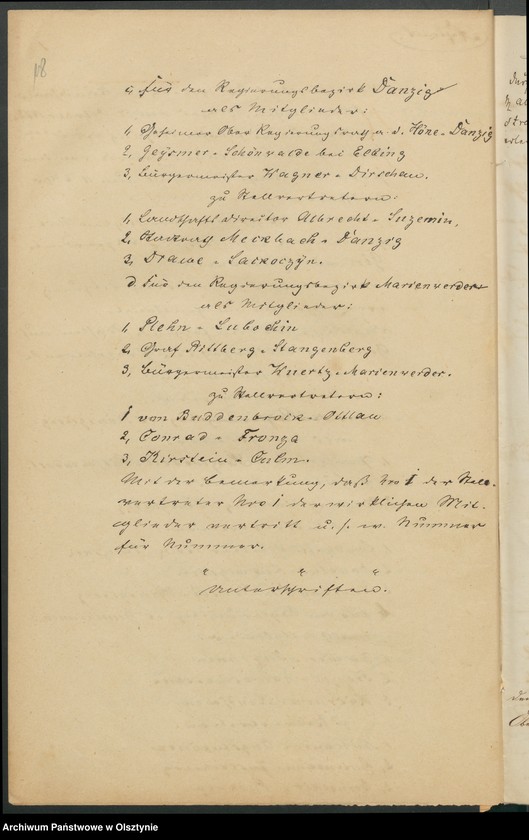 18
c, Für den Regierungsbezirk Danzig
als Mitglieder:
1, Geheimer Ober Regierungsrath a. d. Höne-Danzig
2, Geysmer-Schönwalde bei Elbing
3, Bürgermeister Wagner-Dirschau.
zu Stellvertretern:
1, Landschafts Director Albrecht-Suzemin,
2, Stadtrath Meckbach-Danzig
3, Drawe-Saskoczyn.
d Für den Regierungsbezirk Marienwerder
als Mitglieder:
1, Plehn-Lubochin
2, Graf Rittberg-Stangenberg
3, Bürgermeister Knertz-Marienwerder.
zu Stellvertretern:
1 von Buddenbrock-Ottlau
2, Conrad-Fronza
3, Kirstein-Culm.
Mit der Bemerkung, daß No 1 der Stell-
vertreter Nro 1 der wirklichen Mit-
glieder vertritt u. s. w. Nummer
für Nummer.
" " "
Unterschriften.
Archiwum Państwowe w Olsztynie